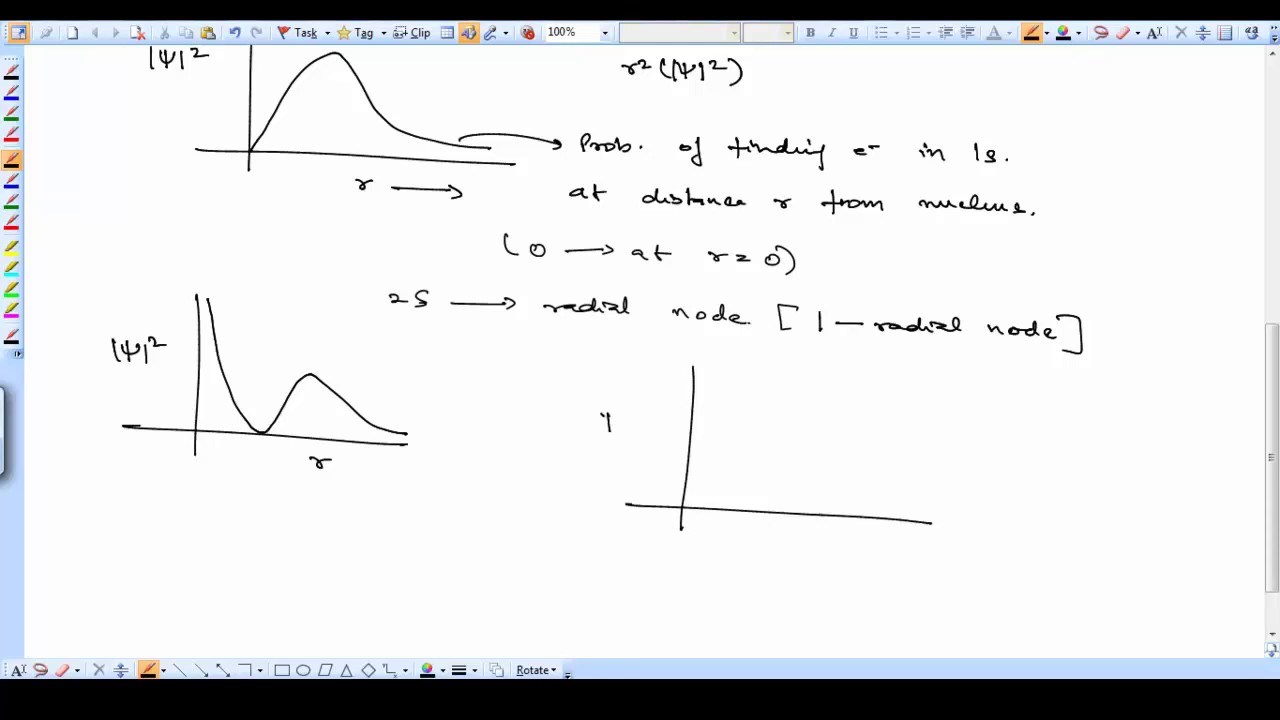 Task Tag Clip 100% B I U
|Ψ|²
r²(|Ψ|²)
Prob. of finding e⁻ in 1s.
r → at distance r from nucleus.
(0 → at r = 0)
2S → radial node [1 — radial node]
|Ψ|²
r
Rotate